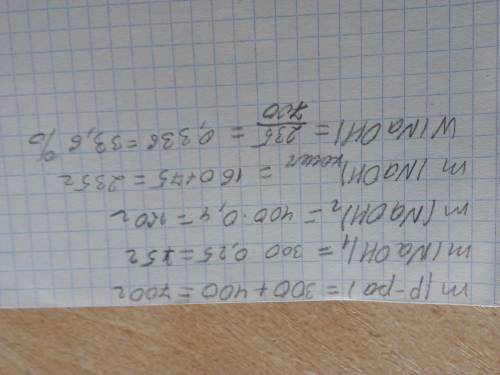 m(р-ра) = 300 + 400 = 700г
m(NaOH)₁ = 300 · 0,25 = 75г
m(NaOH)₂ = 400 · 0,4 = 160г
m(NaOH)конеч = 160 + 75 = 235г
W(NaOH) = 235/700 = 0,336 = 33,6 %